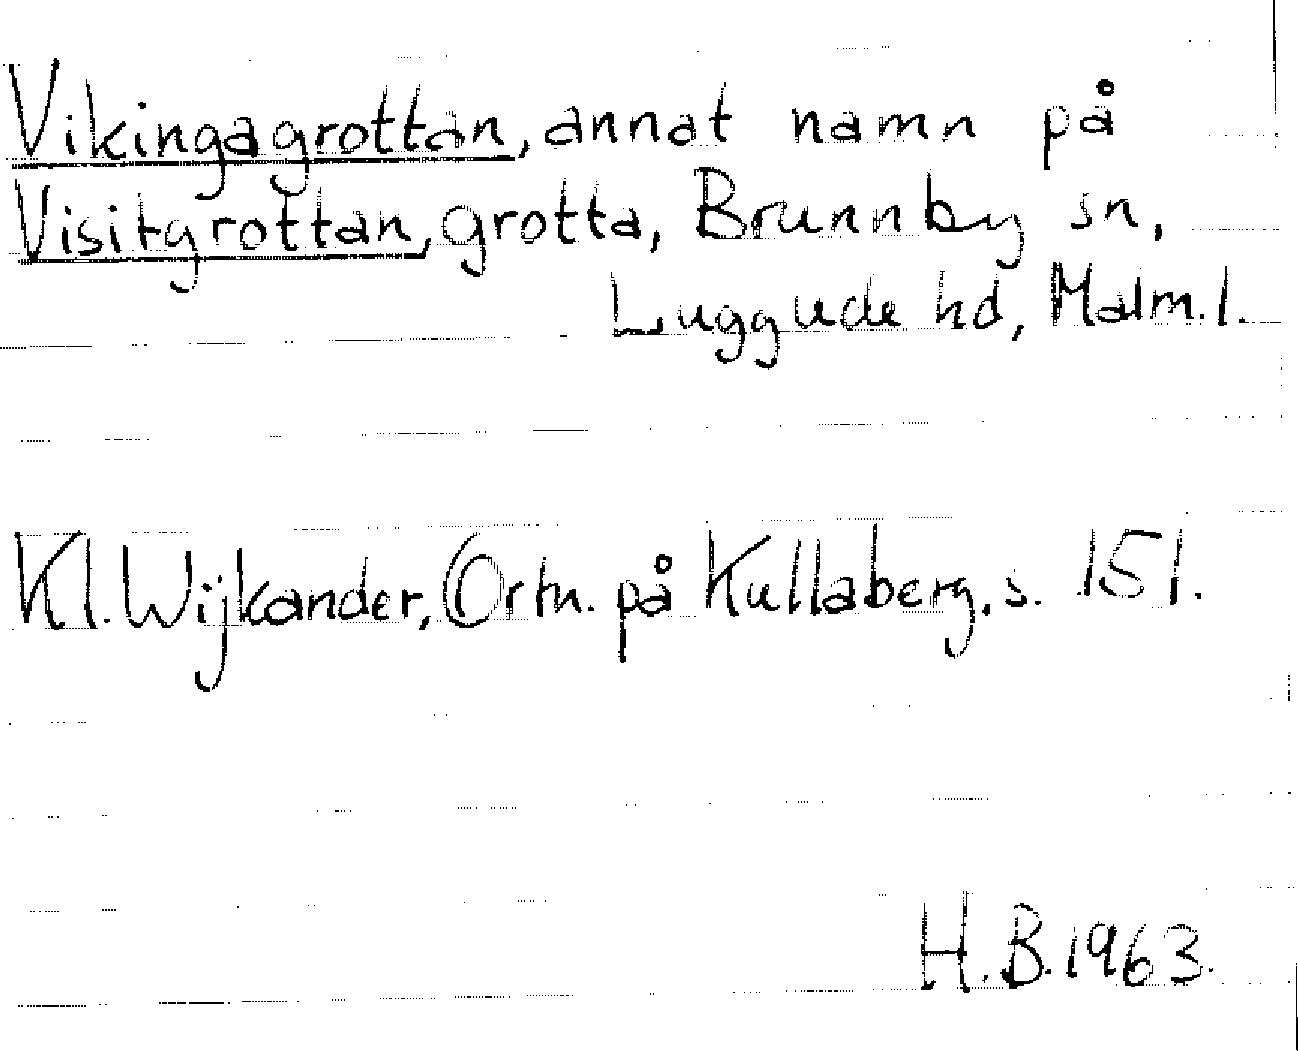 Vikingagrottan, annat namn på
Visitgrottan, grotta, Brunnby sn,
Luggude hd, Malm. l.
Kl. Wijkander, Ortn. på Kullaberg, s. 151.
H. B. 1963.